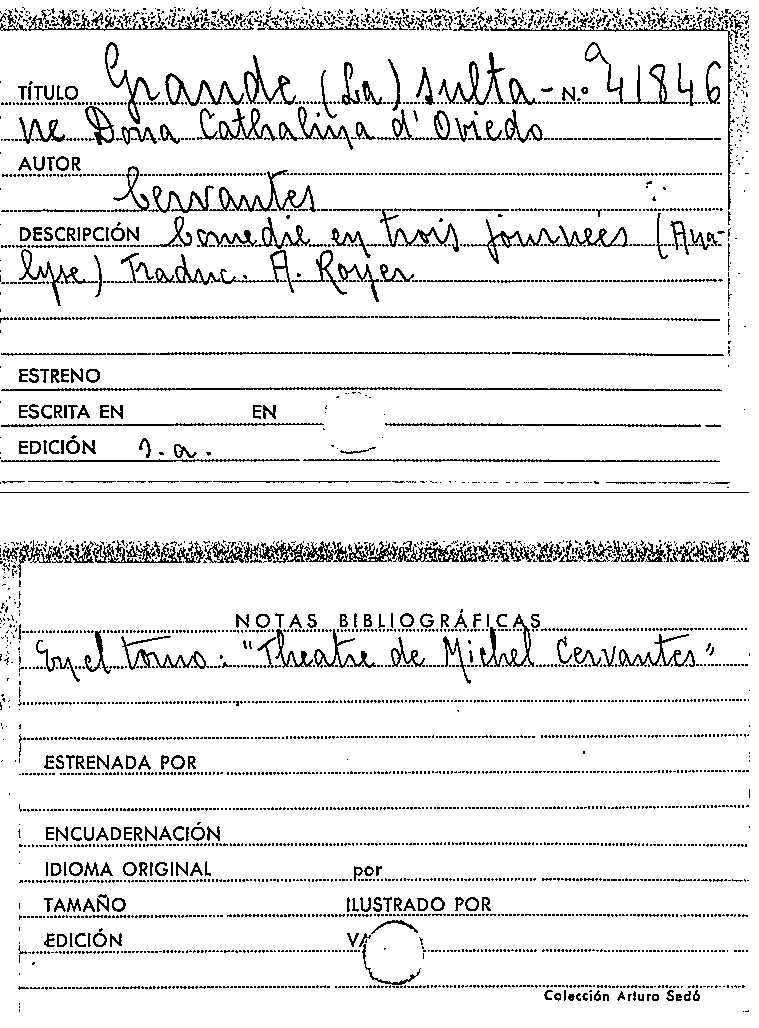 TÍTULO Grande (La) sulta- N.º 41846
ne Dona Cathalina d'Oviedo
AUTOR
Cervantes
DESCRIPCIÓN Comedie en trois journees (Ana-
lyse) Traduc. A. Royer
ESTRENO
ESCRITA EN EN
EDICIÓN s.a.
NOTAS BIBLIOGRÁFICAS
En el tomo: "Theatre de Michel Cervantes"
ESTRENADA POR
ENCUADERNACIÓN
IDIOMA ORIGINAL por
TAMAÑO ILUSTRADO POR
EDICIÓN
Colección Arturo Sedó